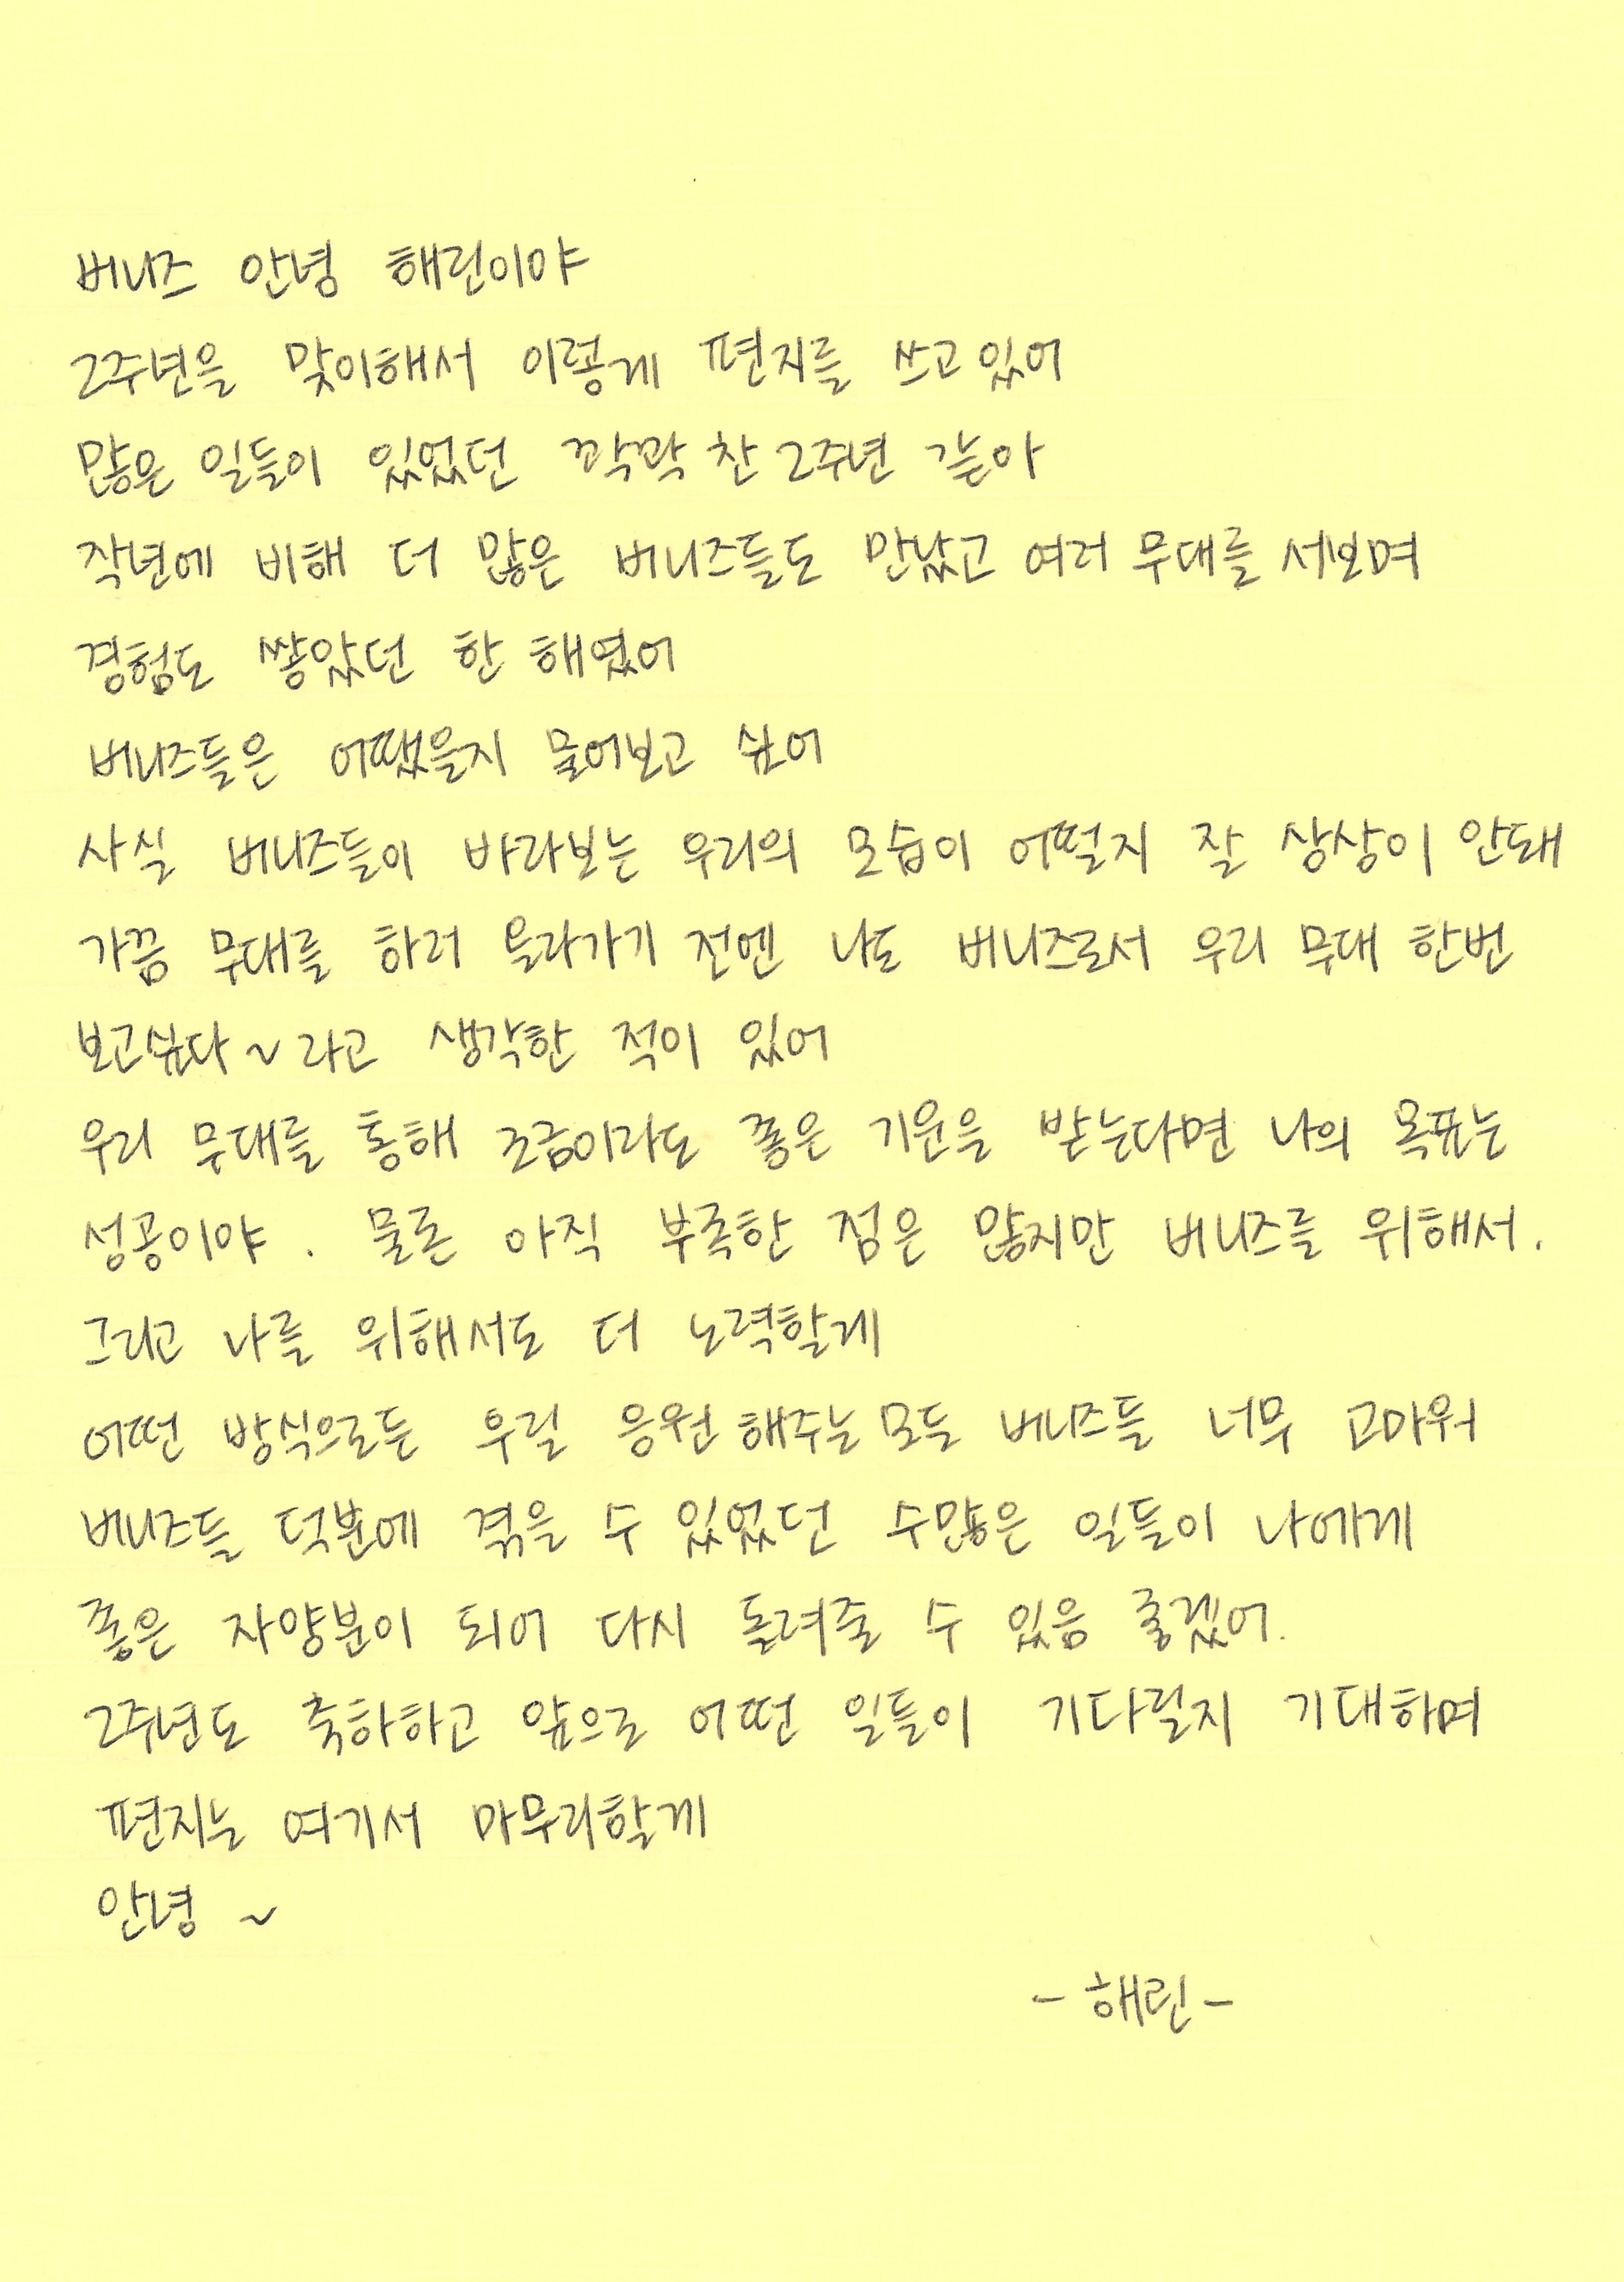 버니즈 안녕 해린이야
2주년을 맞이해서 이렇게 편지를 쓰고있어
많은 일들이 있었던 꽉꽉 찬 2주년 같아
작년에 비해 더 많은 버니즈들도 만났고 여러 무대를 서보며
경험도 쌓았던 한 해였어
버니즈들은 어땠을지 물어보고 싶어
사실 버니즈들이 바라보는 우리의 모습이 어떨지 잘 상상이 안돼
가끔 무대를 하러 올라가기 전엔 나도 버니즈로서 우리 무대 한번
보고싶다~라고 생각한 적이 있어
우리 무대를 통해 조금이라도 좋은 기운을 받는다면 나의 목표는
성공이야. 물론 아직 부족한 점은 많지만 버니즈를 위해서.
그리고 나를 위해서도 더 노력할게
어떤 방식으로든 우릴 응원해주는 모든 버니즈들 너무 고마워
버니즈들 덕분에 겪을 수 있었던 수많은 일들이 나에게
좋은 자양분이 되어 다시 돌려줄 수 있음 좋겠어.
2주년도 축하하고 앞으로 어떤 일들이 기다릴지 기대하며
편지는 여기서 마무리할게
안녕 ~
- 해린 -